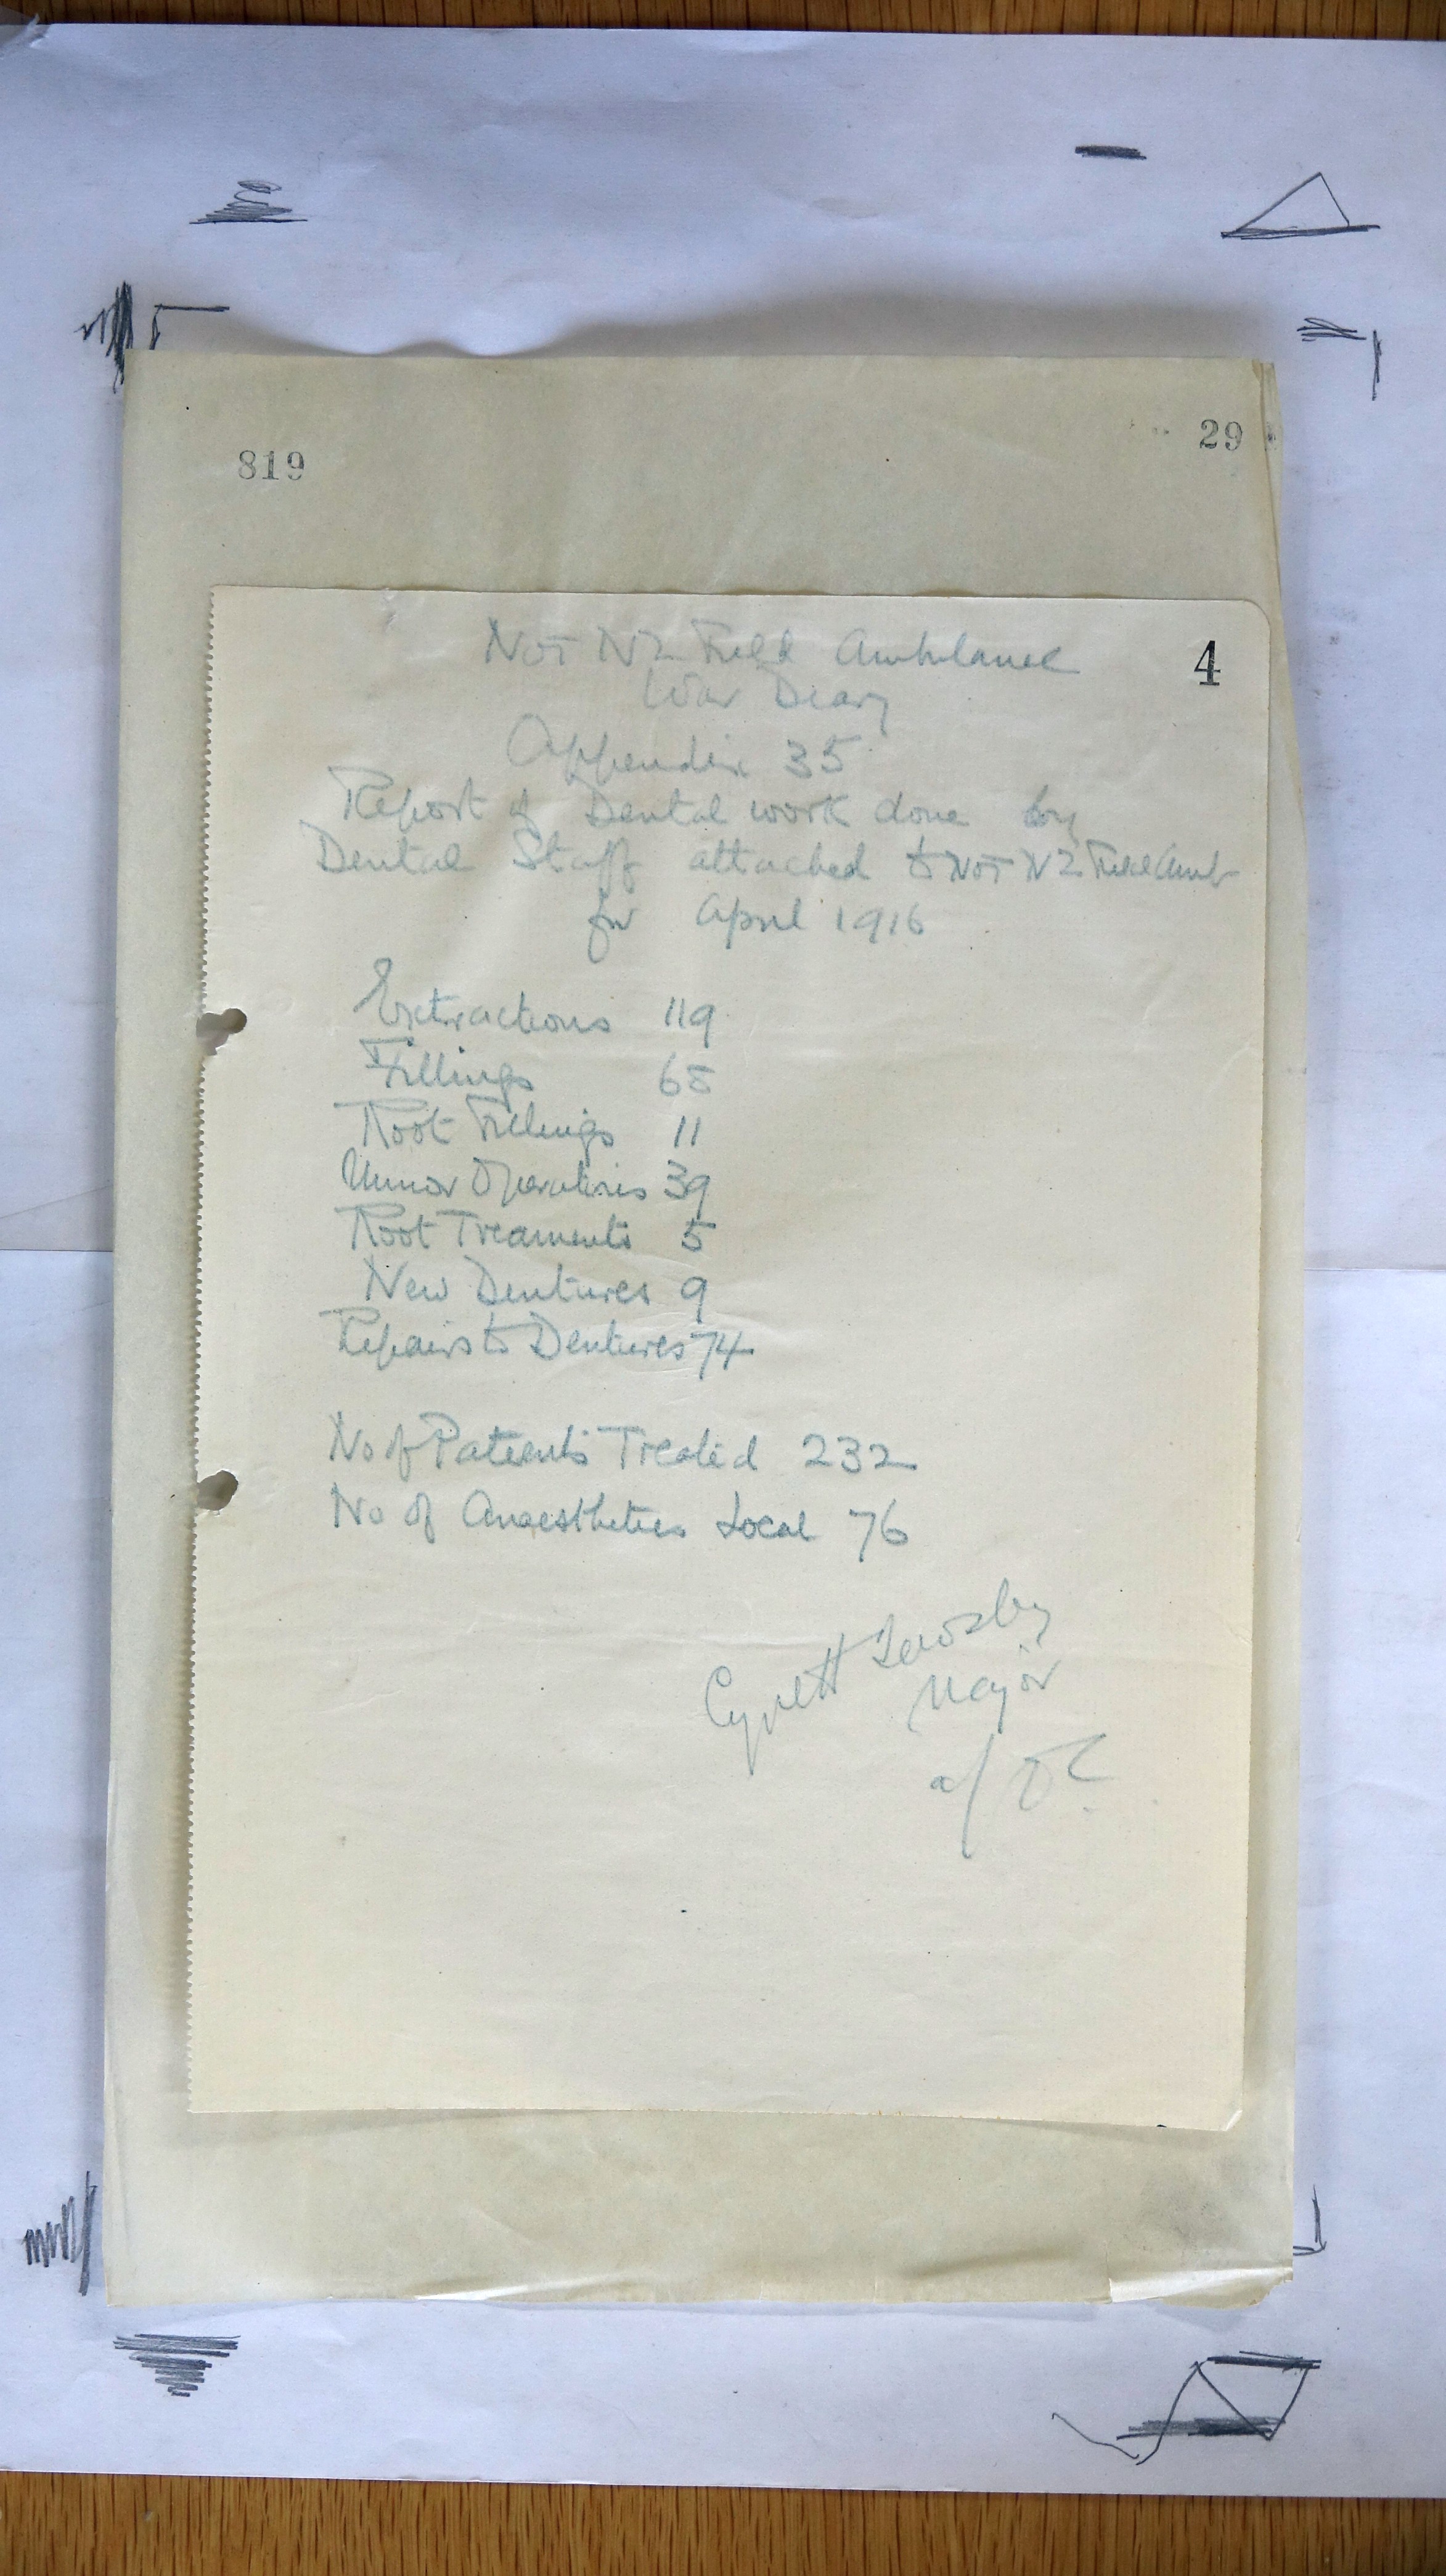 819
29
4
No 1 NZ Field Ambulance
War Diary
Appendix 35
Report of Dental work done by
Dental Staff attached to No 1 NZ Field Amb
for April 1916
Extractions 119
Fillings 65
Root Fillings 11
Minor Operations 39
Root Treaments 5
New Dentures 9
Repairs to Dentures 74
No of Patients Treated 232
No of Anaesthetics Local 76
Major
a/ OC